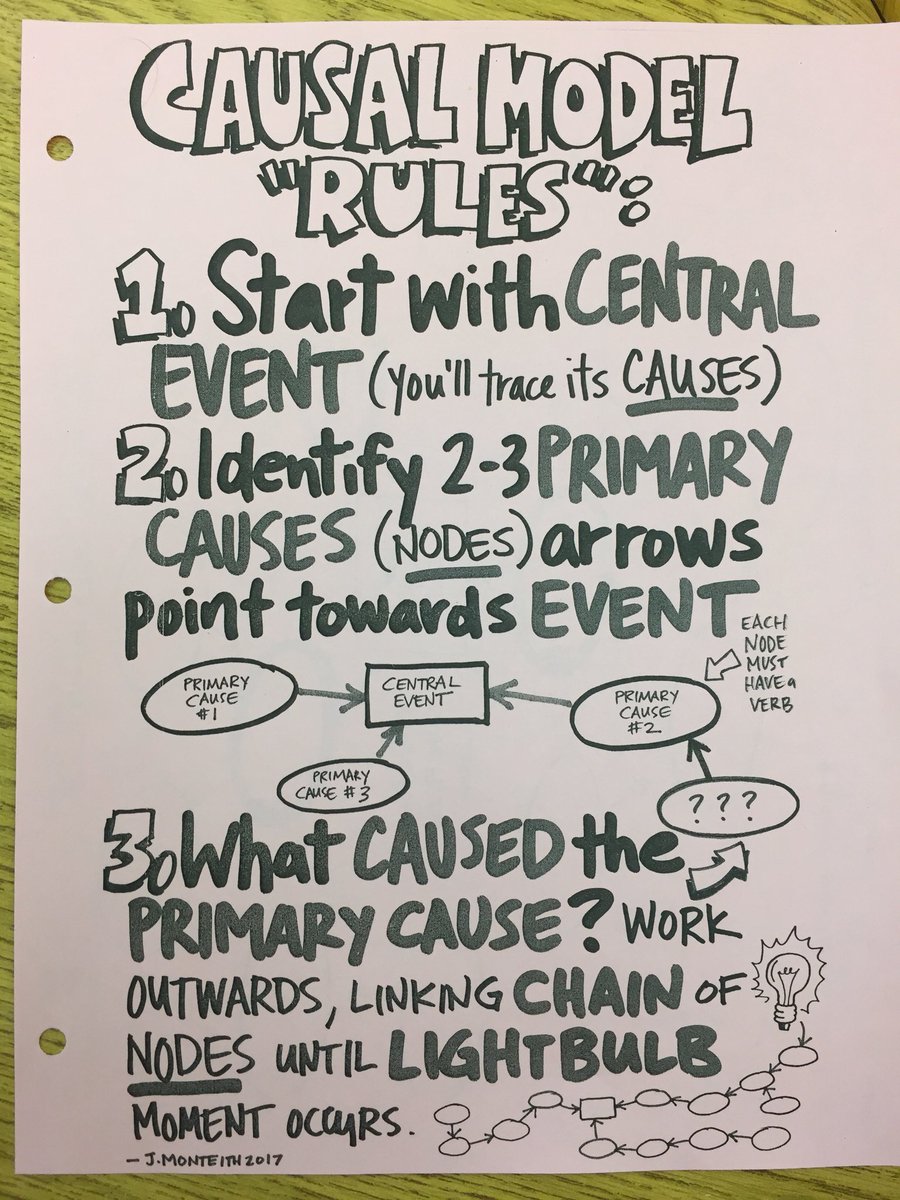 CAUSAL MODEL
"RULES":
1. Start with CENTRAL
EVENT (you'll trace its CAUSES)
2. Identify 2-3 PRIMARY
CAUSES (NODES) arrows
point towards EVENT
EACH
NODE
MUST
HAVE a
VERB
PRIMARY
CAUSE
#1
CENTRAL
EVENT
PRIMARY
CAUSE
#2
PRIMARY
CAUSE #3
? ? ?
3. What CAUSED the
PRIMARY CAUSE? WORK
OUTWARDS, LINKING CHAIN OF
NODES UNTIL LIGHTBULB
MOMENT OCCURS.
- J. MONTEITH 2017